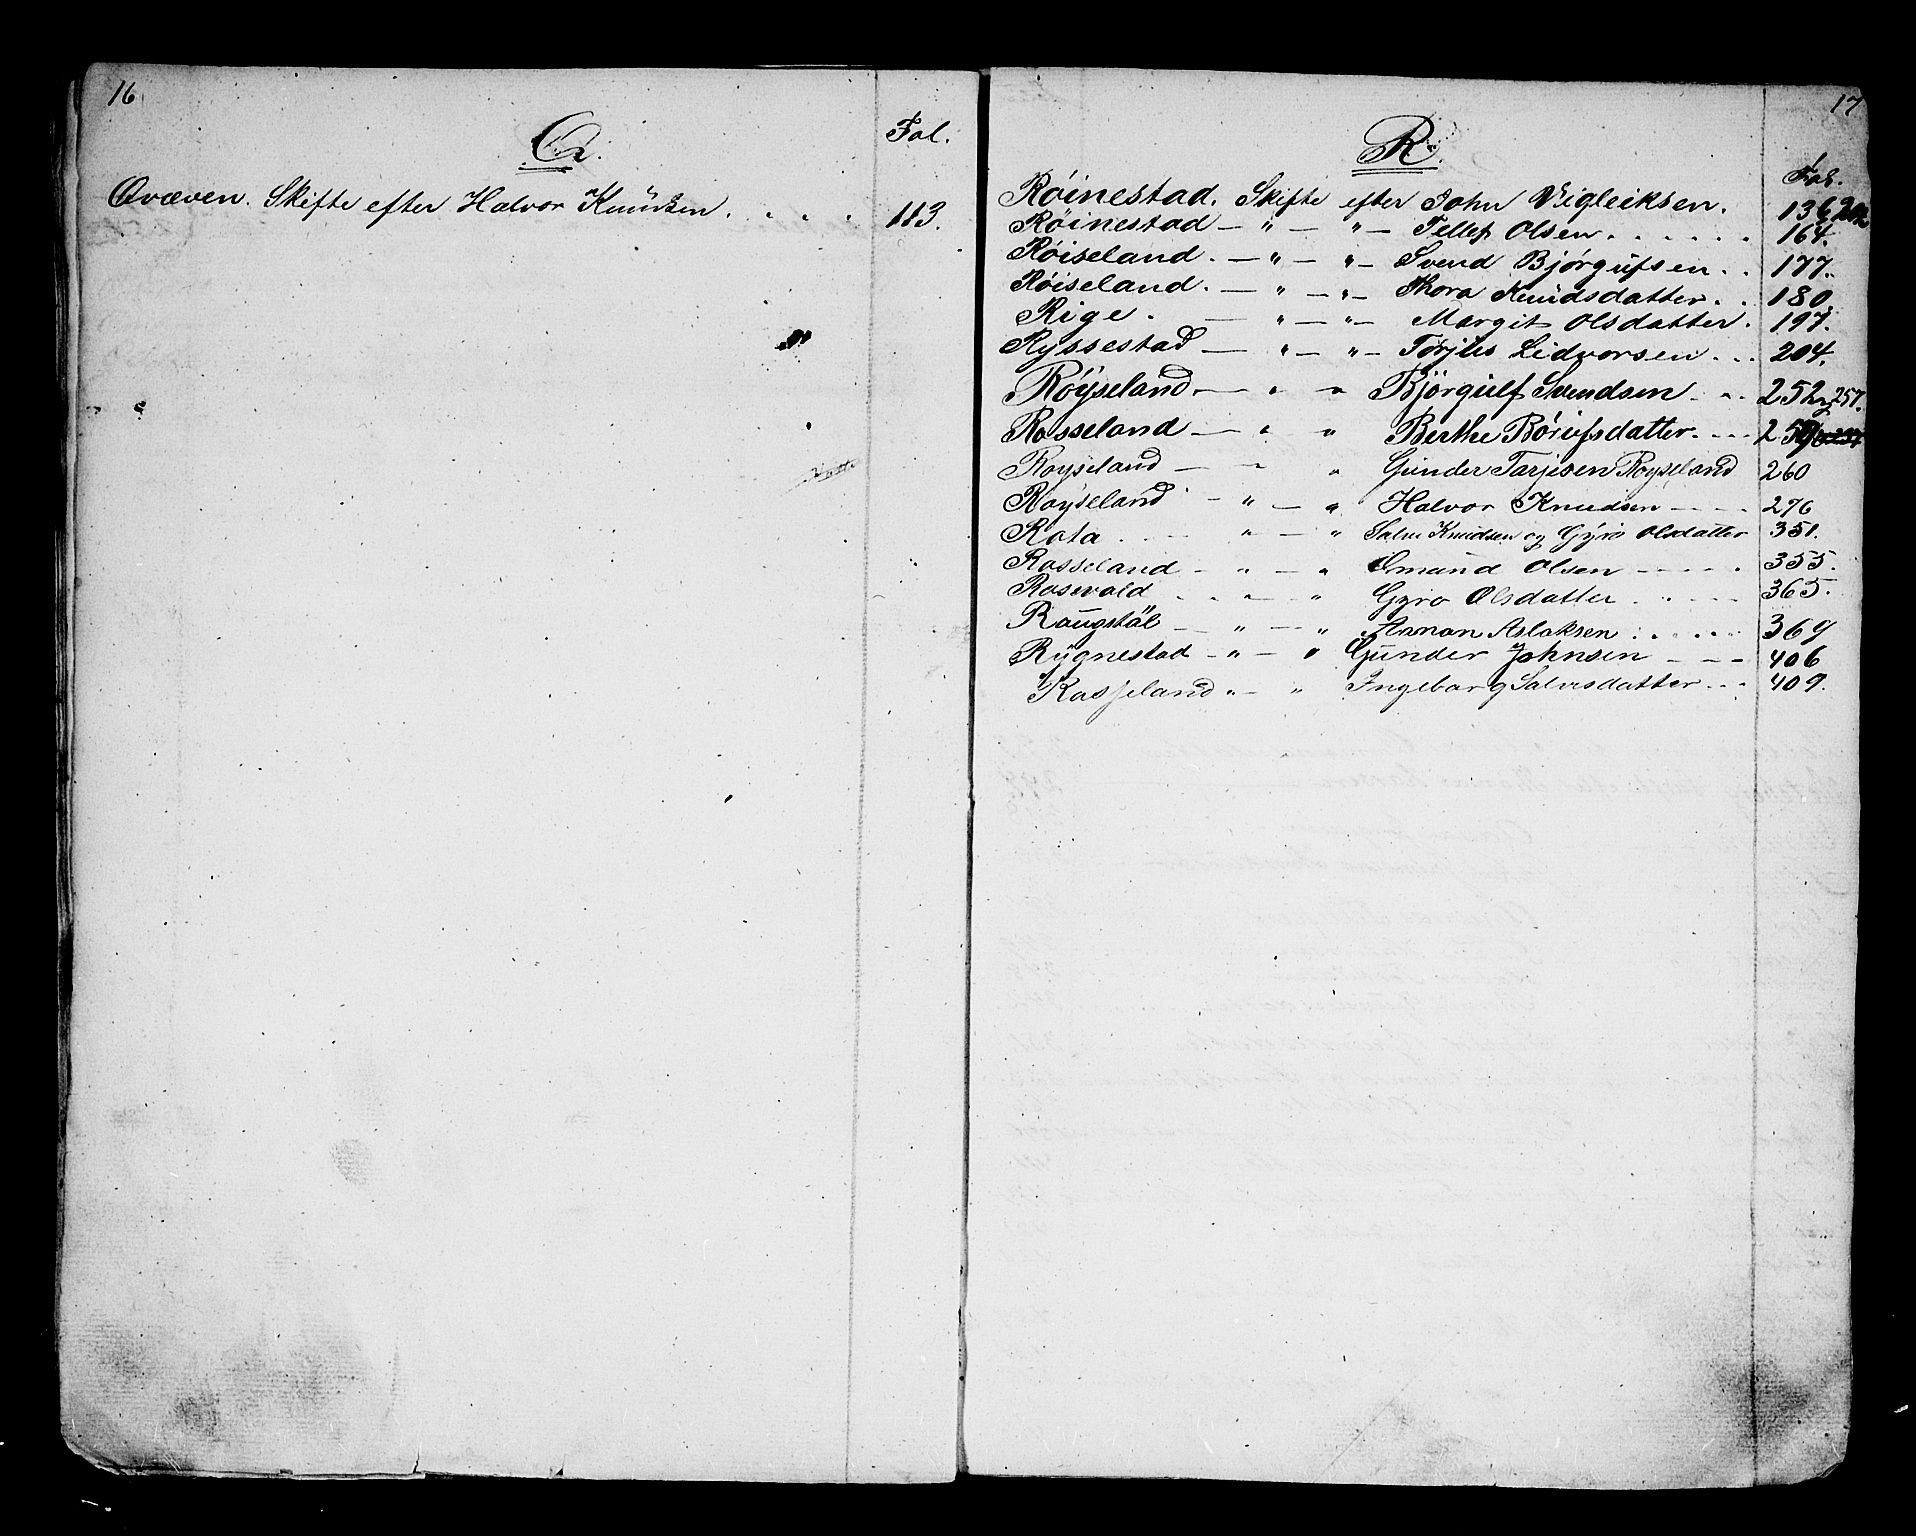 16
Q.
Fol.
Qvæven. Skifte efter Halvor Knudsen. . . . . 113.
17
R.
Fol.
Røinestad. Skifte efter John Vigleiksen. 136,
Røinestad — " — " — Tellef Olsen. . . . . . . 164.
Røiseland. — " — " — Svend Bjørgufsen. . 177.
Røiseland. — " — " — Thora Knudsdatter. . 180.
Rige. — " — " — Margit Olsdatter. 197.
Ryssestad — " — " — Torjus Lidvorsen . . . 204.
Røyseland — " " Bjørgulf Svendsen . . . 252 og 257.
Rosseland — " " Berthe Børufsdatter. - - -
Royseland — " " Gunder Tarjesen Royseland 260
Royseland - " — " Halvor Knudsen - - - - 276
Rota . . . " — " Salve Knudsen og Gyro Olsdatter 351.
Rosseland - " — " Omund Olsen - - - - - . 355.
Rosevold . . " — " Gyro Olsdatter . . . - - 365.
Raugstøl — " — " Aanon Aslaksen . . . . . . 369
Rygnestad - " — " Gunder Johnsen - - - 406
Rosseland " — " Ingeborg Salvesdatter - - - 409.